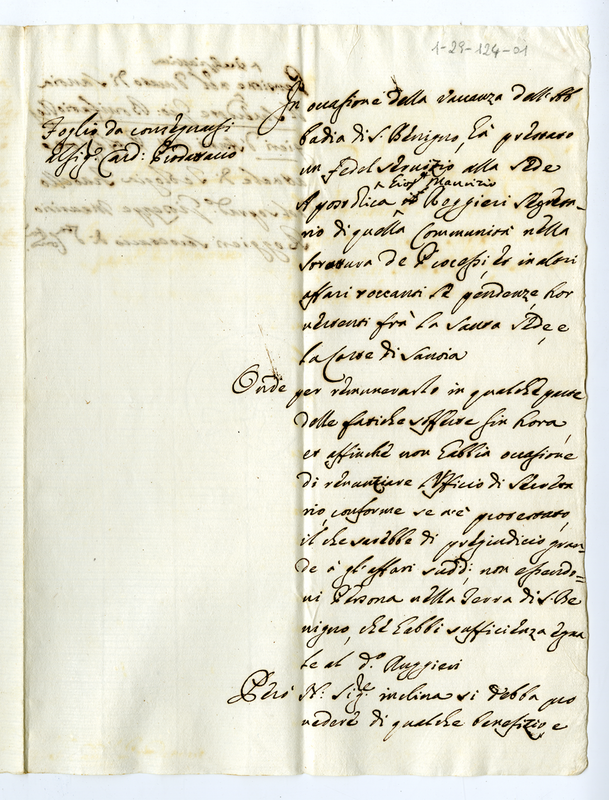 1-29-124-01
Foglio da consegnarsi
al Sig.r Card:
In occasione della vacanza dell'Ab
badia di S. Benigno, hà prestato
un fedel servizio alla Sede
Apostolica il Roggieri Segreta-
Gio: Maurizio
rio di quella Communità nella
struttura de Processi, et in altri
affari toccanti le pendenze, hor
vertenti frà la Santa Sede, e
la Corte di Savoia
Onde per remunerarlo in qualche parte
delle fatiche sofferte sin hora,
et affinche non habbia occasione
di renunziare l'Officio di Secreta
rio, conforme se n'è protestato,
il che sarebbe di pregiudicio gran-
de à gl'affari sudd.i, non essendo-
vi Persona nella Terra di S. Be
nigno, che habbi sufficienza equa
le al d.o Ruggieri
Però N. Sig.re inclina si debba pro
vedere di qualche benefizio, e